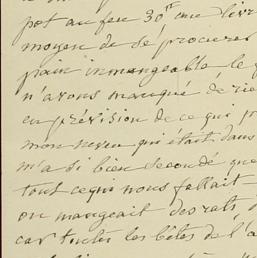 pot au feu 30 une livr
moyen de se procurer
pain immangeable le
n'avons manqué de rie
en prévision de ce qui p
mon neveu qui était dans
m'a si bien secondé que
tout ce qui nous fallait
on mangeait des rats d
car toutes les bêtes de l'a